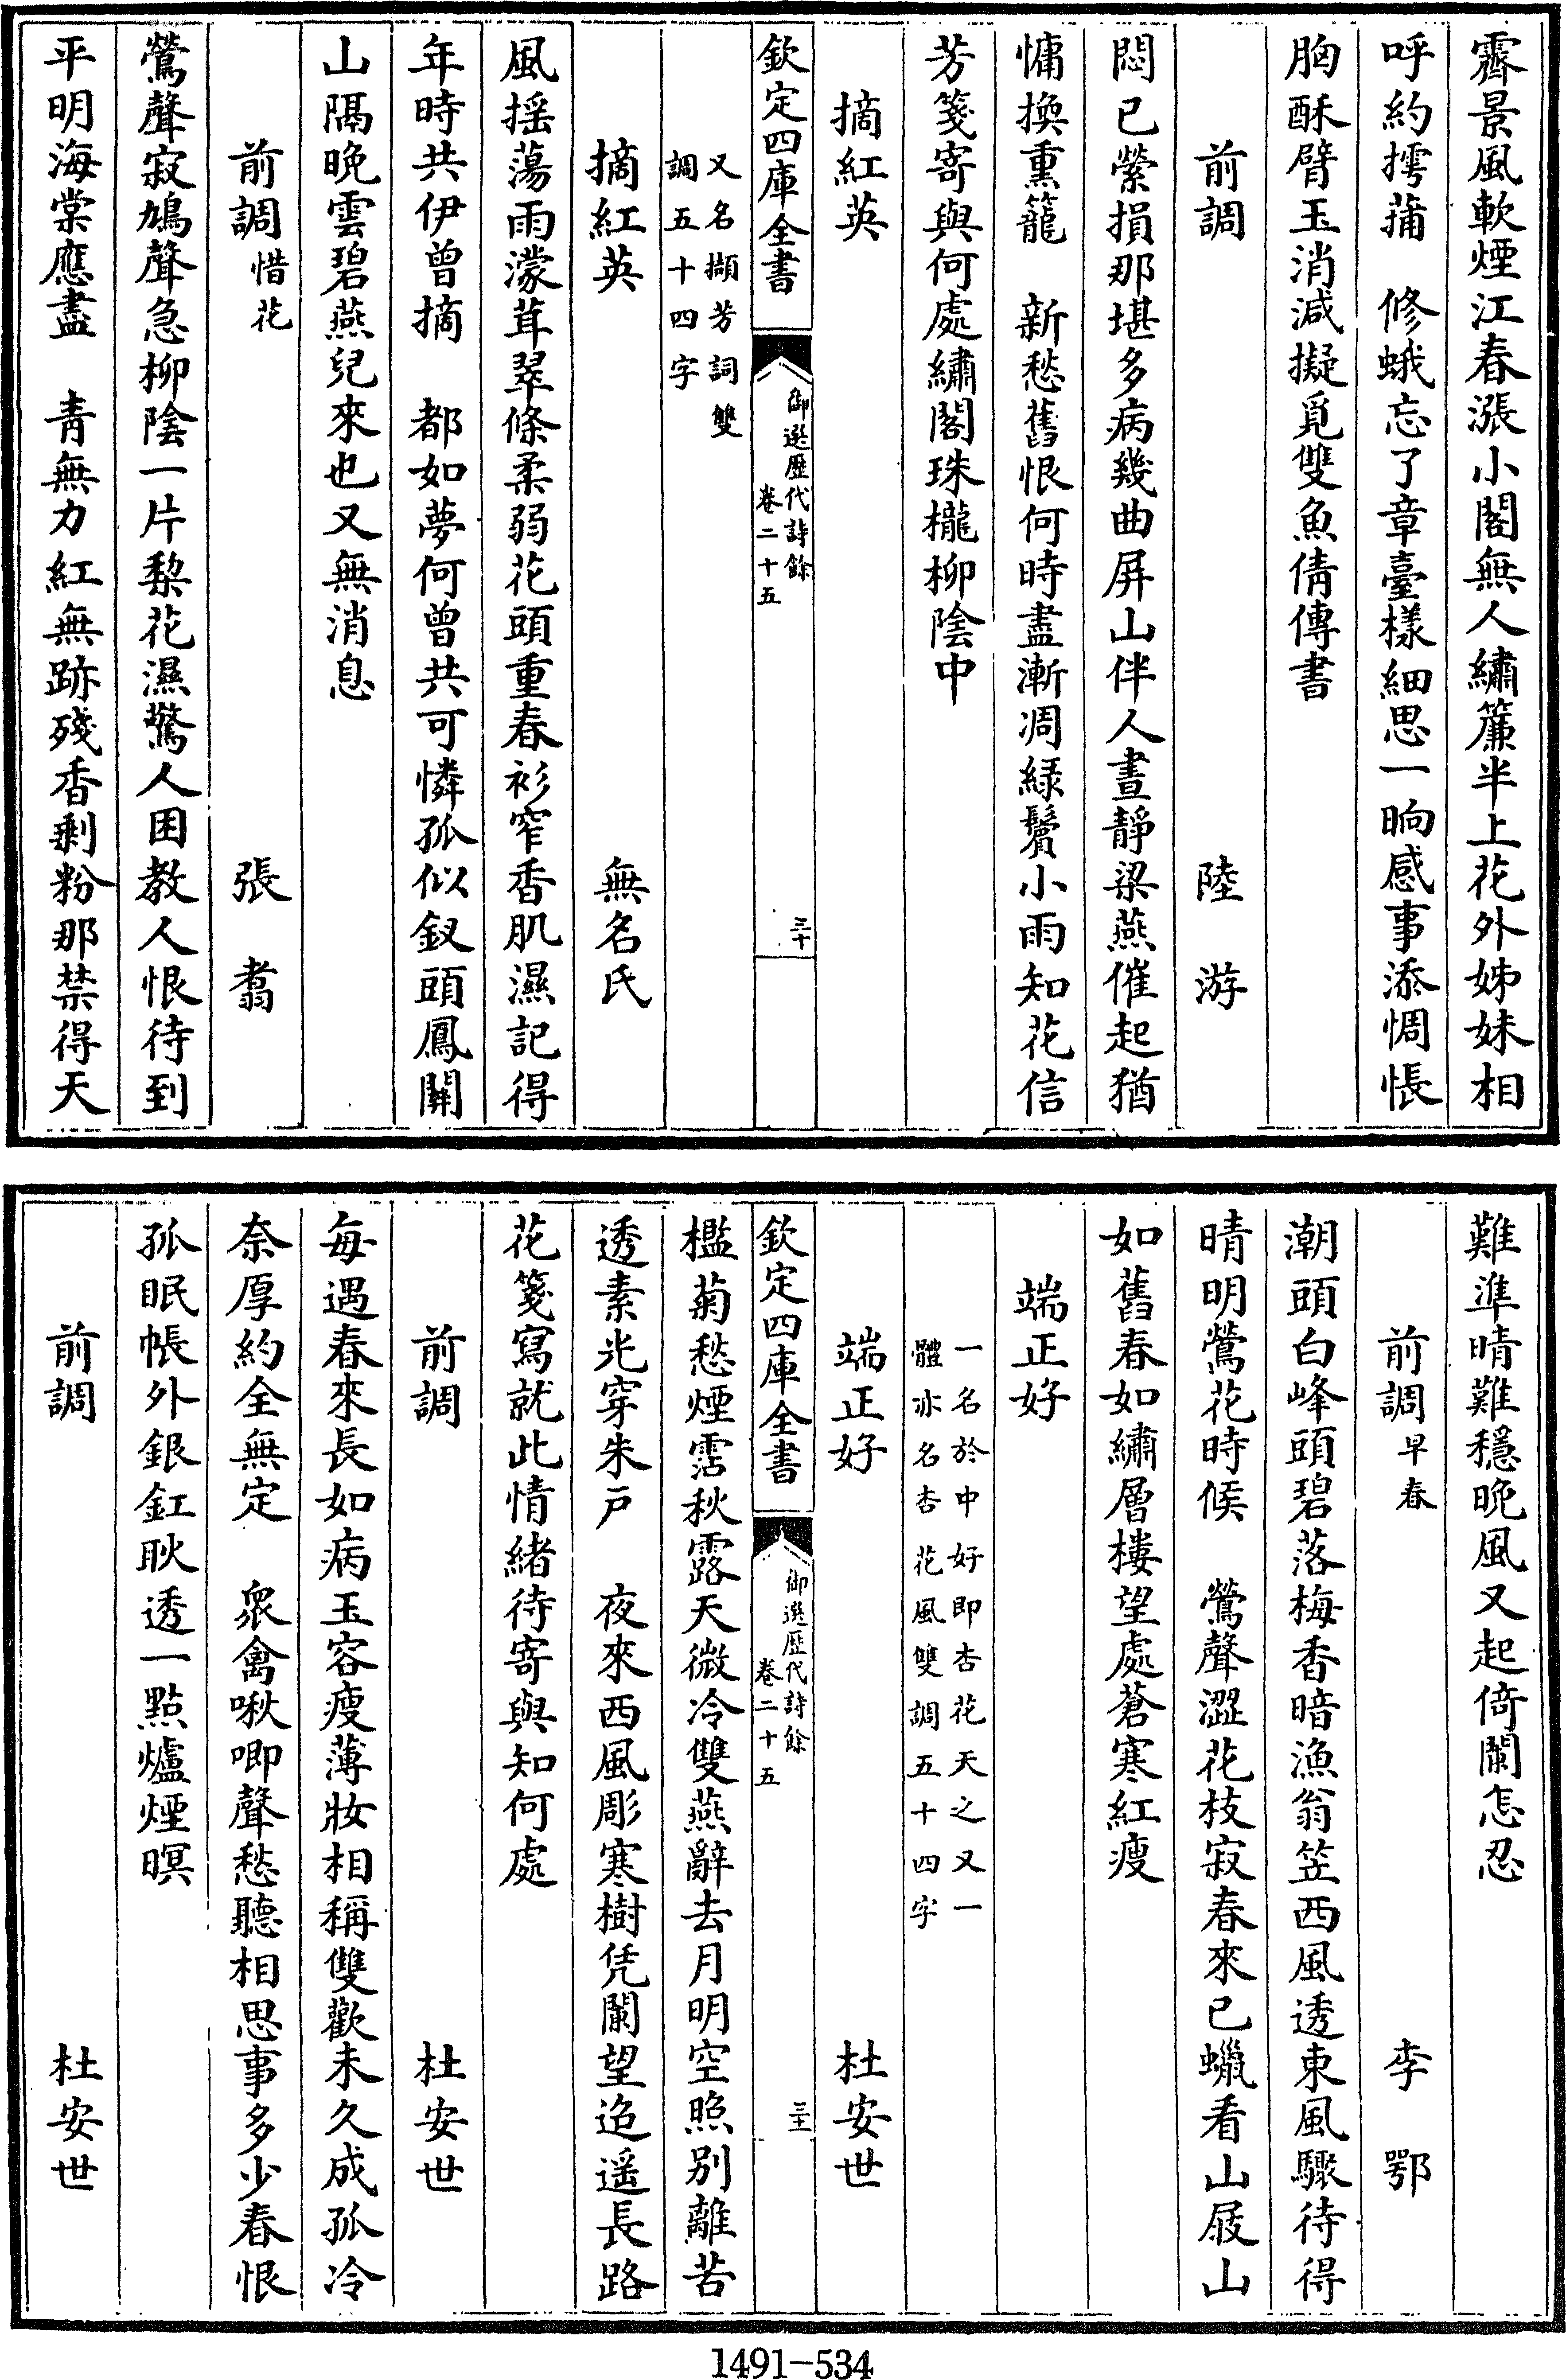 霽景風軟煙江春漲小閣無人繡簾半上花外姊妹相
呼約摴蒱　修蛾忘了章臺様細思一晌感事添惆悵
胸酥臂玉消減擬覓雙魚倩傳書
前調　陸游
悶已縈損那堪多病幾曲屏山伴人晝靜梁燕催起猶
慵換熏籠　新愁舊恨何時盡漸凋緑鬢小雨知花信
芳箋寄與何處繡閣珠櫳柳陰中
摘紅英
欽定四庫全書
御選歷代詩餘
卷二十五
三十
又名擷芳詞雙
調五十四字
摘紅英　無名氏
風揺蕩雨濛茸翠條柔弱花頭重春衫窄香肌濕記得
年時共伊曾摘　都如夢何曾共可憐孤似釵頭鳳關
山隔晩雲碧燕兒來也又無消息
前調惜花　張翥
鶯聲寂鳩聲急柳陰一片棃花濕驚人困教人恨待到
平明海棠應盡　青無力紅無跡殘香剩粉那禁得天
難準晴難穩晩風又起倚闌怎忍
前調早春　李鄂
潮頭白峰頭碧落梅香暗漁翁笠西風透東風驟待得
晴明鶯花時候　鶯聲澀花枝寂春來已蠟看山屐山
如舊春如繡層樓望處蒼寒紅瘦
端正好
一名於中好即杏花天之又一
體亦名杏花風雙調五十四字
端正好　杜安世
欽定四庫全書
御選歷代詩餘
卷二十五
三十一
檻菊愁煙霑秋露天微冷雙燕辭去月明空照别離苦
透素光穿朱戸　夜來西風彫寒樹凭闌望迢遥長路
花箋寫就此情緒待寄與知何處
前調　杜安世
每遇春來長如病玉容瘦薄妝相稱雙歡未久成孤冷
奈厚約全無定　衆禽啾唧聲愁聽相思事多少春恨
孤眠帳外銀釭耿透一點爐煙暝
前調　杜安世
1491-534